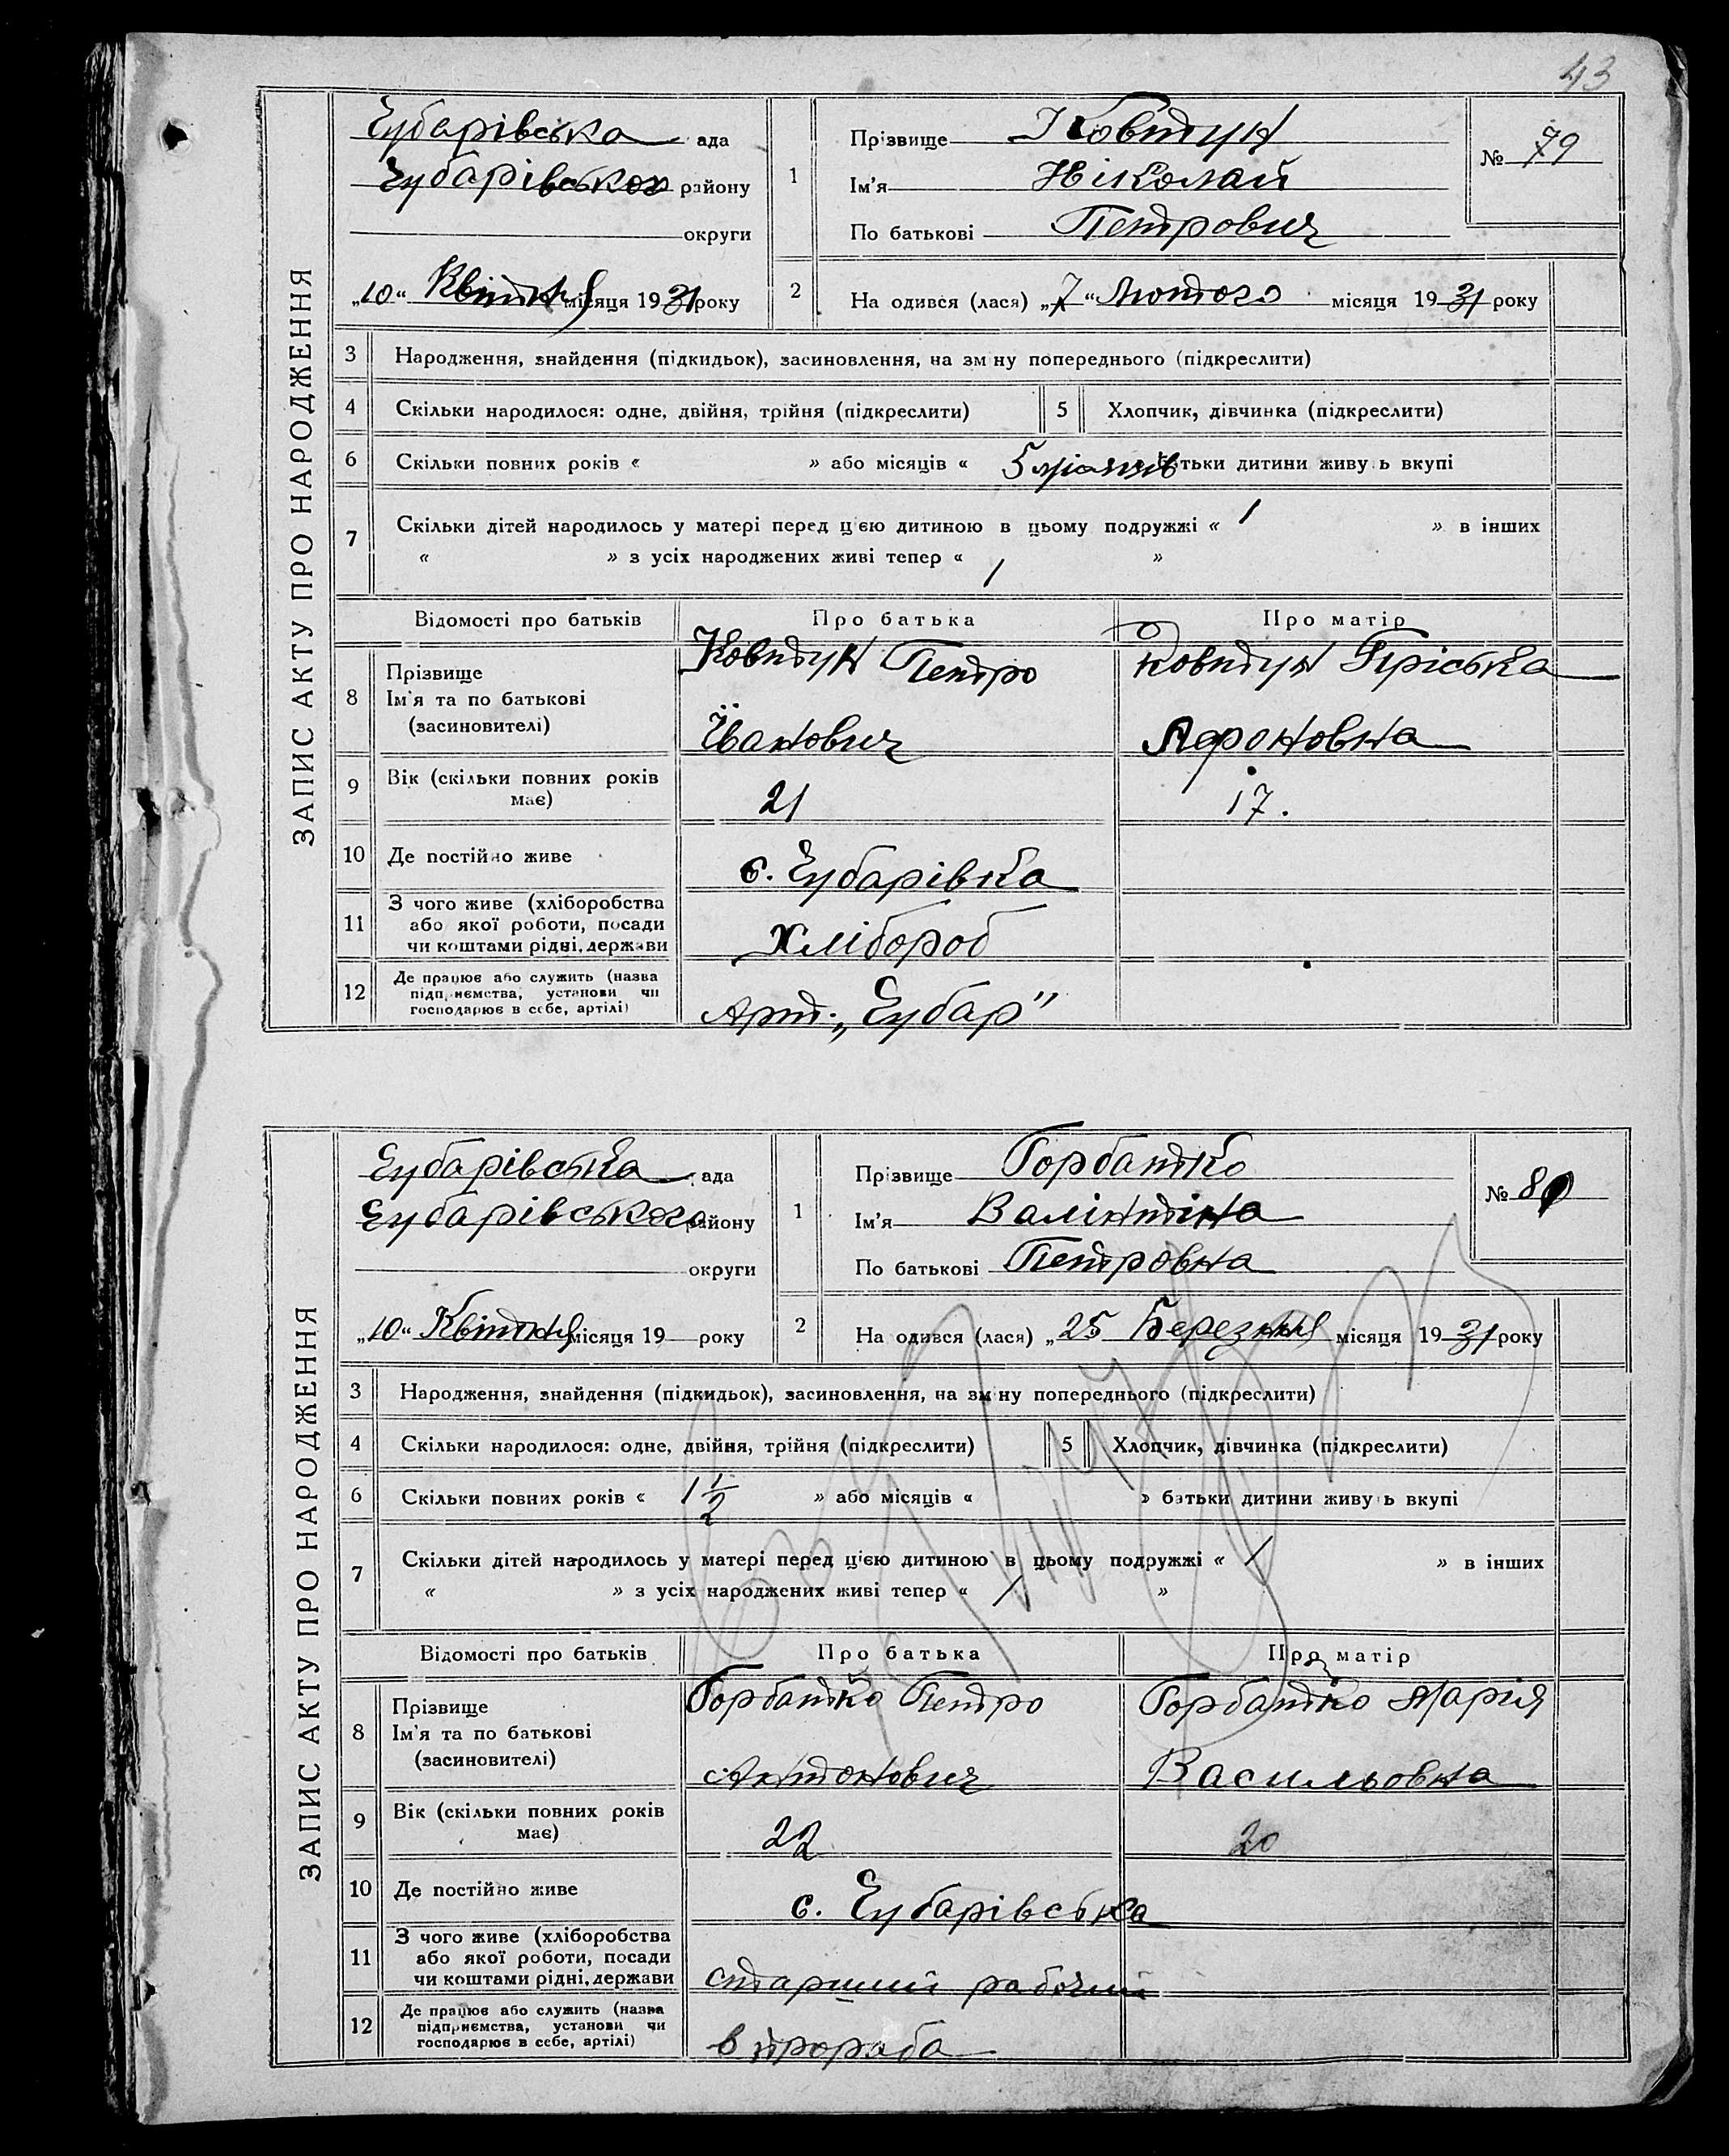 43
ЗАПИС АКТУ ПРО НАРОДЖЕННЯ
Чубарівська ада
Чубарівського району
округи
„10“ Квітня місяця 1931 року
1
Прізвище Ковтун
Ім'я Ніколай
По батькові Петрович
№ 79
2
На одився (лася) „7“ Лютого місяця 1931 року
3 Народження, знайдення (підкидьок), засиновлення, на зм ну попереднього (підкреслити)
4 Скільки народилося: одне, двійня, трійня (підкреслити) 5 Хлопчик, дівчинка (підкреслити)
6 Скільки повних років « » або місяців « 5 місяців батьки дитини живу ь вкупі
7 Скільки дітей народилось у матері перед цією дитиною в цьому подружжі « 1 » в інших
« » з усіх народжених живі тепер « 1 »
Відомості про батьків Про батька Про матір
8 Прізвище
Ім'я та по батькові
(засиновителі)
Ковтун Петро
Іванович
Ковтун Пріська
Афоновна
9 Вік (скільки повних років
має)
21 17.
10 Де постійно живе с. Чубарівка
11 З чого живе (хліборобства
або якої роботи, посади
чи коштами рідні, держави
Хлібороб
12 Де працює або служить (назва
підприємства, установи чи
господарює в себе, артілі)
Арт. „Чубар"
ЗАПИС АКТУ ПРО НАРОДЖЕННЯ
Чубарівська ада
Чубарівського району
округи
„10“ Квітня місяця 19 року
1
Прізвище Горбатко
Ім'я Валінтіна
По батькові Петровна
№ 80
2
На одився (лася) „25 Березння місяця 1931 року
3 Народження, знайдення (підкидьок), засиновлення, на зміну попереднього (підкреслити)
4 Скільки народилося: одне, двійня, трійня (підкреслити) 5 Хлопчик, дівчинка (підкреслити)
6 Скільки повних років « 1 1/2 » або місяців « » батьки дитини живу ь вкупі
7 Скільки дітей народилось у матері перед цією дитиною в цьому подружжі « 1 » в інших
« » з усіх народжених живі тепер « 1 »
Відомості про батьків Про батька Про матір
8 Прізвище
Ім'я та по батькові
(засиновителі)
Горбатко Петро
Антонович
Горбатко Марія
Васильовна
9 Вік (скільки повних років
має)
22 20
10 Де постійно живе с. Чубарівська
11 З чого живе (хліборобства
або якої роботи, посади
чи коштами рідні, держави
старший рабочий
12 Де працює або служить (назва
підприємства, установи чи
господарює в себе, артілі)
в прораба